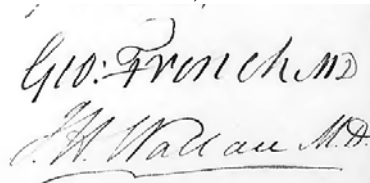 Geo: French MD
J. H. Wallace M.D.